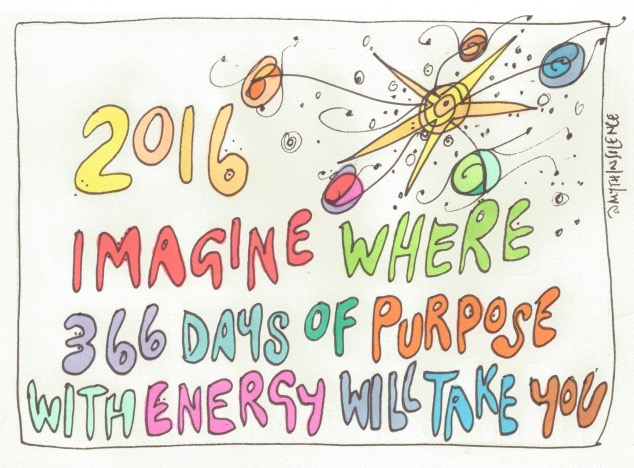 2016
IMAGINE WHERE
366 DAYS OF PURPOSE
WITH ENERGY WILL TAKE YOU